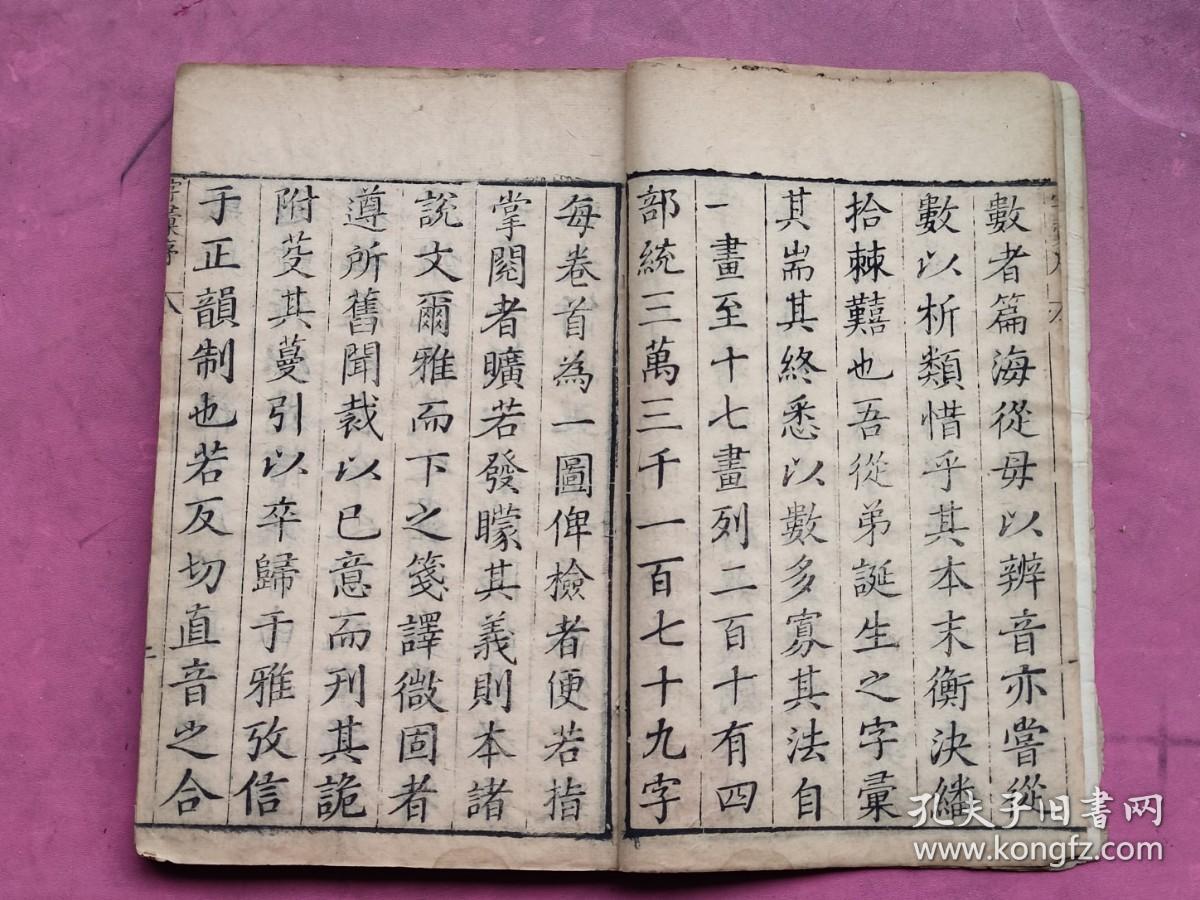 數者篇海從母以辨音亦嘗從
數以析類惜乎其本末衡決繙
拾棘囏也吾從弟誕生之字彙
其耑其終悉以數多寡其法自
一畫至十七畫列二百十有四
部統三萬三千一百七十九字
每卷首為一圖俾檢者便若指
掌閱者曠若發矇其義則本諸
說文爾雅而下之箋譯微固者
遵所舊聞裁以已意而刊其詭
附芟其蔓引以卒歸于雅攷信
于正韻制也若反切直音之合
字彙序
八
孔夫子旧书网
www.kongfz.com